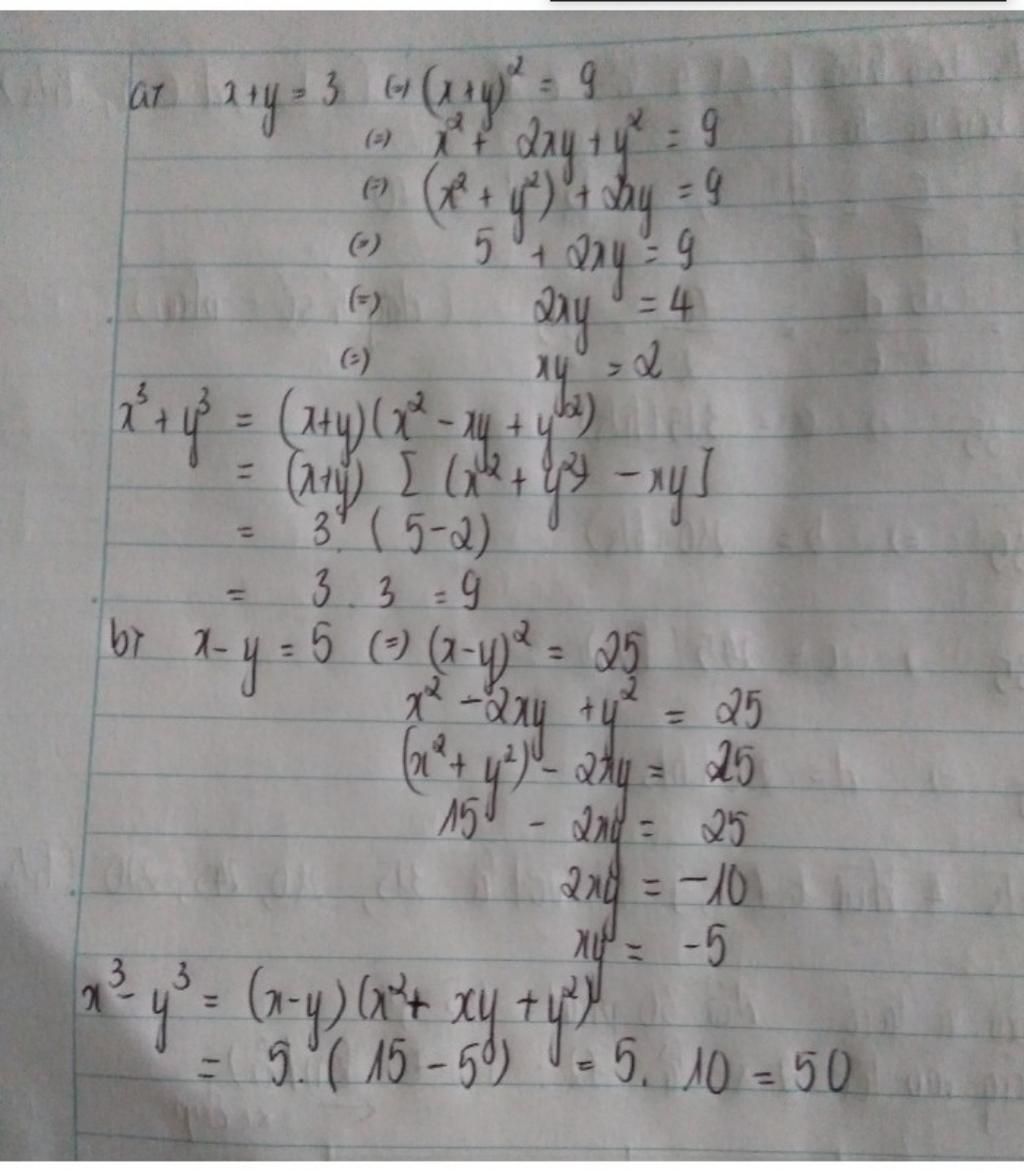 a, x+y = 3 (=) (x+y)² = 9
(=) x² + 2xy + y² = 9
(=) (x² + y²) + 2xy = 9
(=) 5 + 2xy = 9
(=) 2xy = 4
(=) xy = 2
x³ + y³ = (x+y)(x² - xy + y²)
= (x+y) [ (x² + y²) - xy ]
= 3. ( 5-2)
= 3 . 3 = 9
b, x - y = 5 (=) (x-y)² = 25
x² - 2xy + y² = 25
(x² + y²) - 2xy = 25
15 - 2xy = 25
2xy = -10
xy = -5
x³ - y³ = (x-y)(x² + xy + y²)
= 5. ( 15 - 5) = 5. 10 = 50